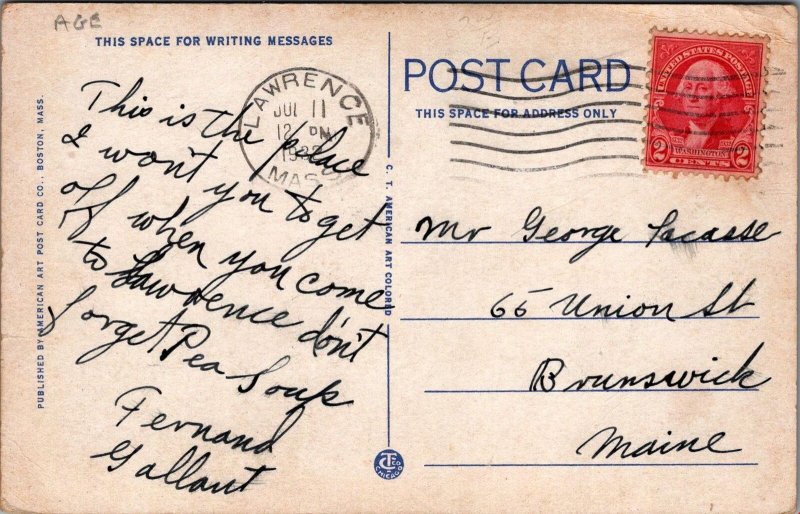 AGE
THIS SPACE FOR WRITING MESSAGES
This is the place
I won't you to get
off when you come
to Lawrence don't
forget Pea Soup
Fernand
Gallant
PUBLISHED BY AMERICAN ART POST CARD CO., BOSTON, MASS.
C. T. AMERICAN ART COLORED
CHICAGO
LAWRENCE
JUL 11
12 PM
MASS
POST CARD
THIS SPACE FOR ADDRESS ONLY
UNITED STATES POSTAGE
WASHINGTON
2 CENTS 2
Mr George Lacasse
65 Union St
Brunswick
Maine